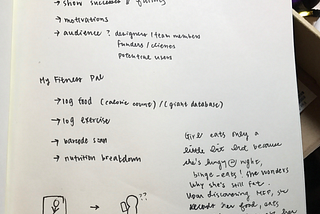 → show successes & failings
→ motivations
→ audience? designers / team members
funders / clients
potential users
My Fitness Pal
→ log food (calorie count) / (giant database)
→ log exercise
→ barcode scan
→ nutrition breakdown
Girl eats only a
little bit but because
she's hungry @ night,
binge-eats! She wonders
why she's still fat.
Upon discovering MFP, she
records her food, eats
her
→ ??